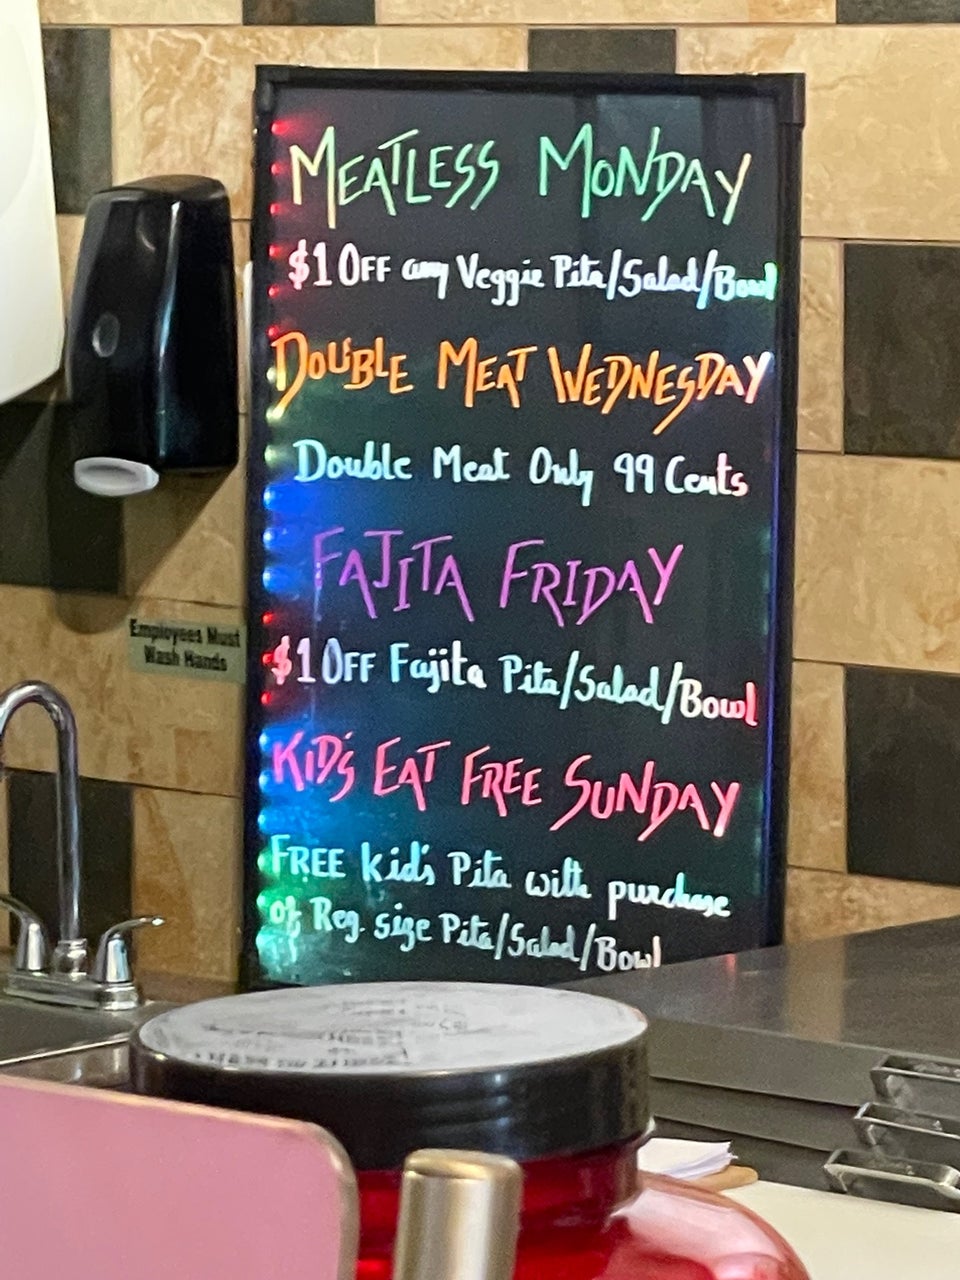 MEATLESS MONDAY
$1 OFF any Veggie Pita/Salad/Bowl
DOUBLE MEAT WEDNESDAY
Double Meat Only 99 Cents
FAJITA FRIDAY
$1 OFF Fajita Pita/Salad/Bowl
KID'S EAT FREE SUNDAY
FREE kid's Pita with purchase
of Reg. size Pita/Salad/Bowl
Employees Must
Wash Hands